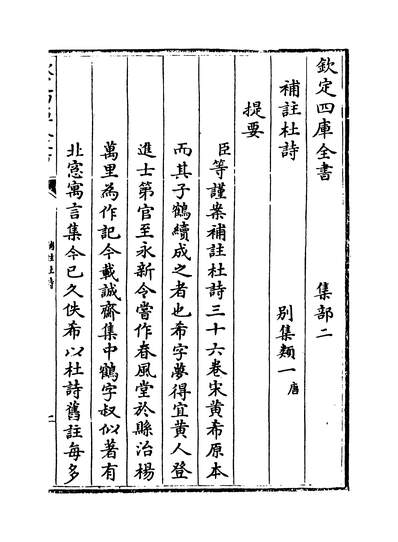 欽定四庫全書　集部二
補註杜詩　別集類一唐
提要
臣等謹案補註杜詩三十六卷宋黃希原本
而其子鶴續成之者也希字夢得宜黃人登
進士第官至永新令嘗作春風堂於縣治楊
萬里為作記今載誠齋集中鶴字叔似著有
北窓寓言集今已久佚希以杜詩舊註每多
補註杜詩